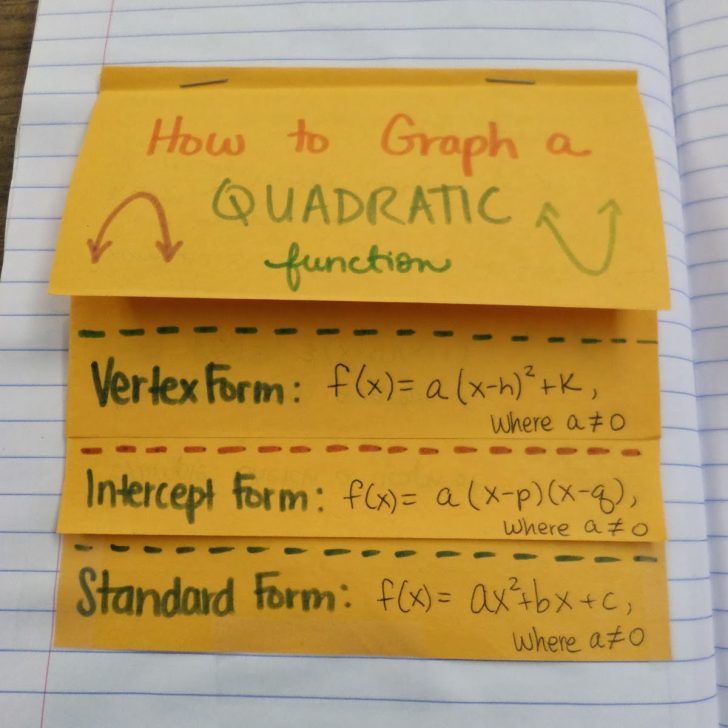 How to Graph a
QUADRATIC
function
Vertex Form: f(x)= a(x-h)²+k,
Where a≠0
Intercept Form: f(x)= a(x-p)(x-q),
Where a≠0
Standard Form: f(x)= ax²+bx+c,
Where a≠0